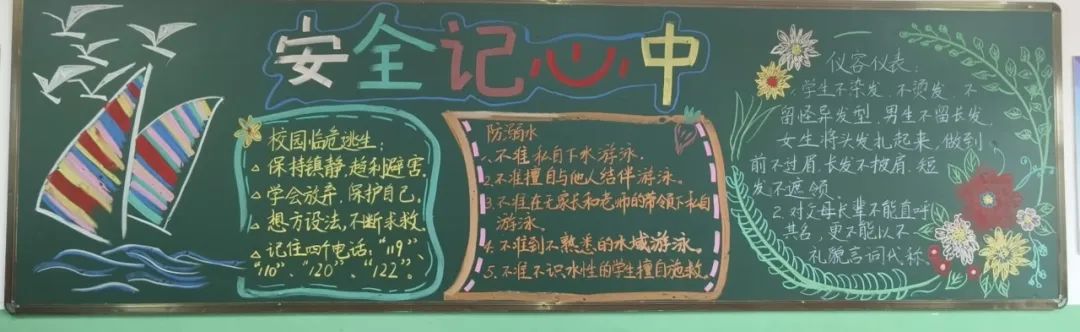 安全记心中
校园临危逃生:
△保持镇静,趋利避害.
△学会放弃,保护自己.
△想方设法,不断求救.
△记住四个电话:“119”、
“110”、“120”、“122”。
防溺水
1.不准私自下水游泳.
2.不准擅自与他人结伴游泳。
3.不准在无家长和老师的带领下私自
游泳。
4.不准到不熟悉的水域游泳。
5.不准不识水性的学生擅自施救。
一
仪容仪表:
学生不染发、不烫发、不
留怪异发型,男生不留长发,
女生将头发扎起来,做到
前不过眉、长发不披肩、短
发不遮领
2.对父母长辈不能直呼
其名,更不能以不
礼貌言词代称